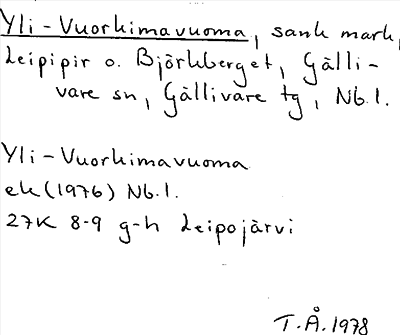 Yli-Vuorkimavuoma, sank mark,
Leipipir o. Björkberget, Gälli-
vare sn, Gällivare tg, Nb.l.
Yli-Vuorkimavuoma
ek (1976) Nb.l.
27K 8-9 g-h Leipojärvi
T.Å. 1978